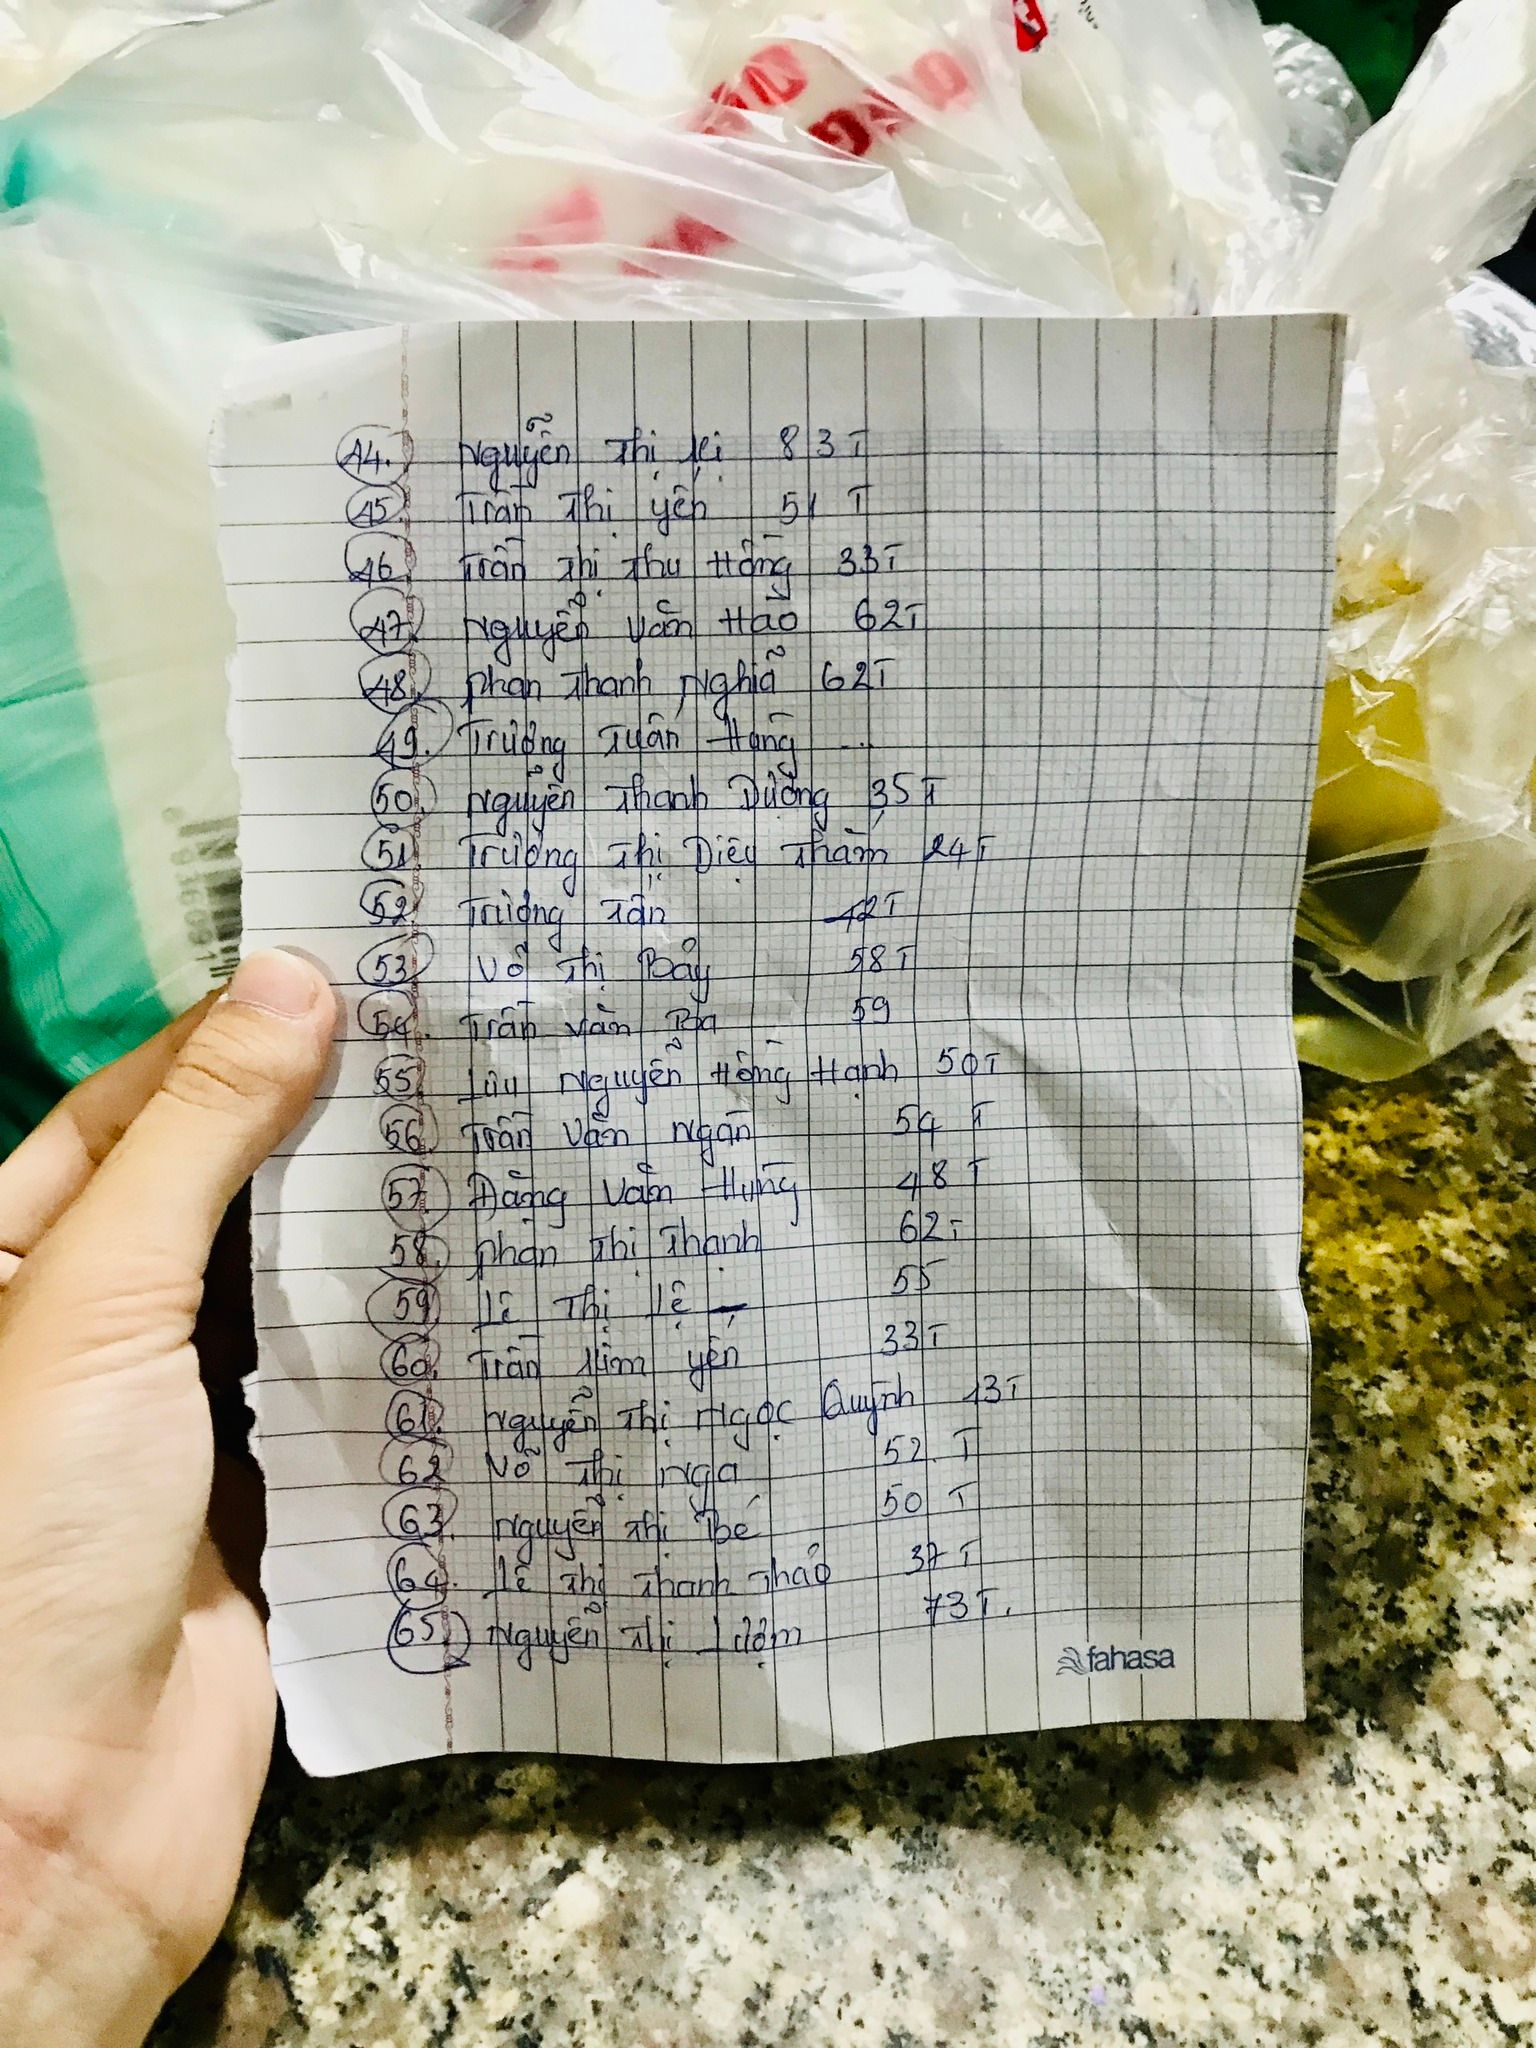 44. Nguyễn Thị Kị 83T
45. Trần Thị Yến 51 T
46. Trần Thị Thu Hồng 33T
47. Nguyễn Văn Hào 62T
48. Phan Thanh Nghĩa 62T
49. Trương Tuấn Hùng ...
50. Nguyễn Thanh Dương 35T
51. Trương Thị Diệu Thắm 24T
52. Trương Tấn 42T
53. Võ Thị Bảy 58T
54. Trần Văn Ba 59
55. Lưu Nguyễn Hồng Hạnh 50T
56. Trần Văn Ngân 54 T
57. Đặng Văn Hùng 48 T
58. Phan Thị Thạnh 62T
59. Lê Thị Lệ 55
60. Trần Kim Yến 33T
61. Nguyễn Thị Ngọc Quỳnh 13T
62 Võ Thị Nga 52. T
63. Nguyễn Thị Bé 50 T
64. Lê Thị Thanh Thảo 37 T
65. Nguyễn Thị Lượm 73T.
fahasa